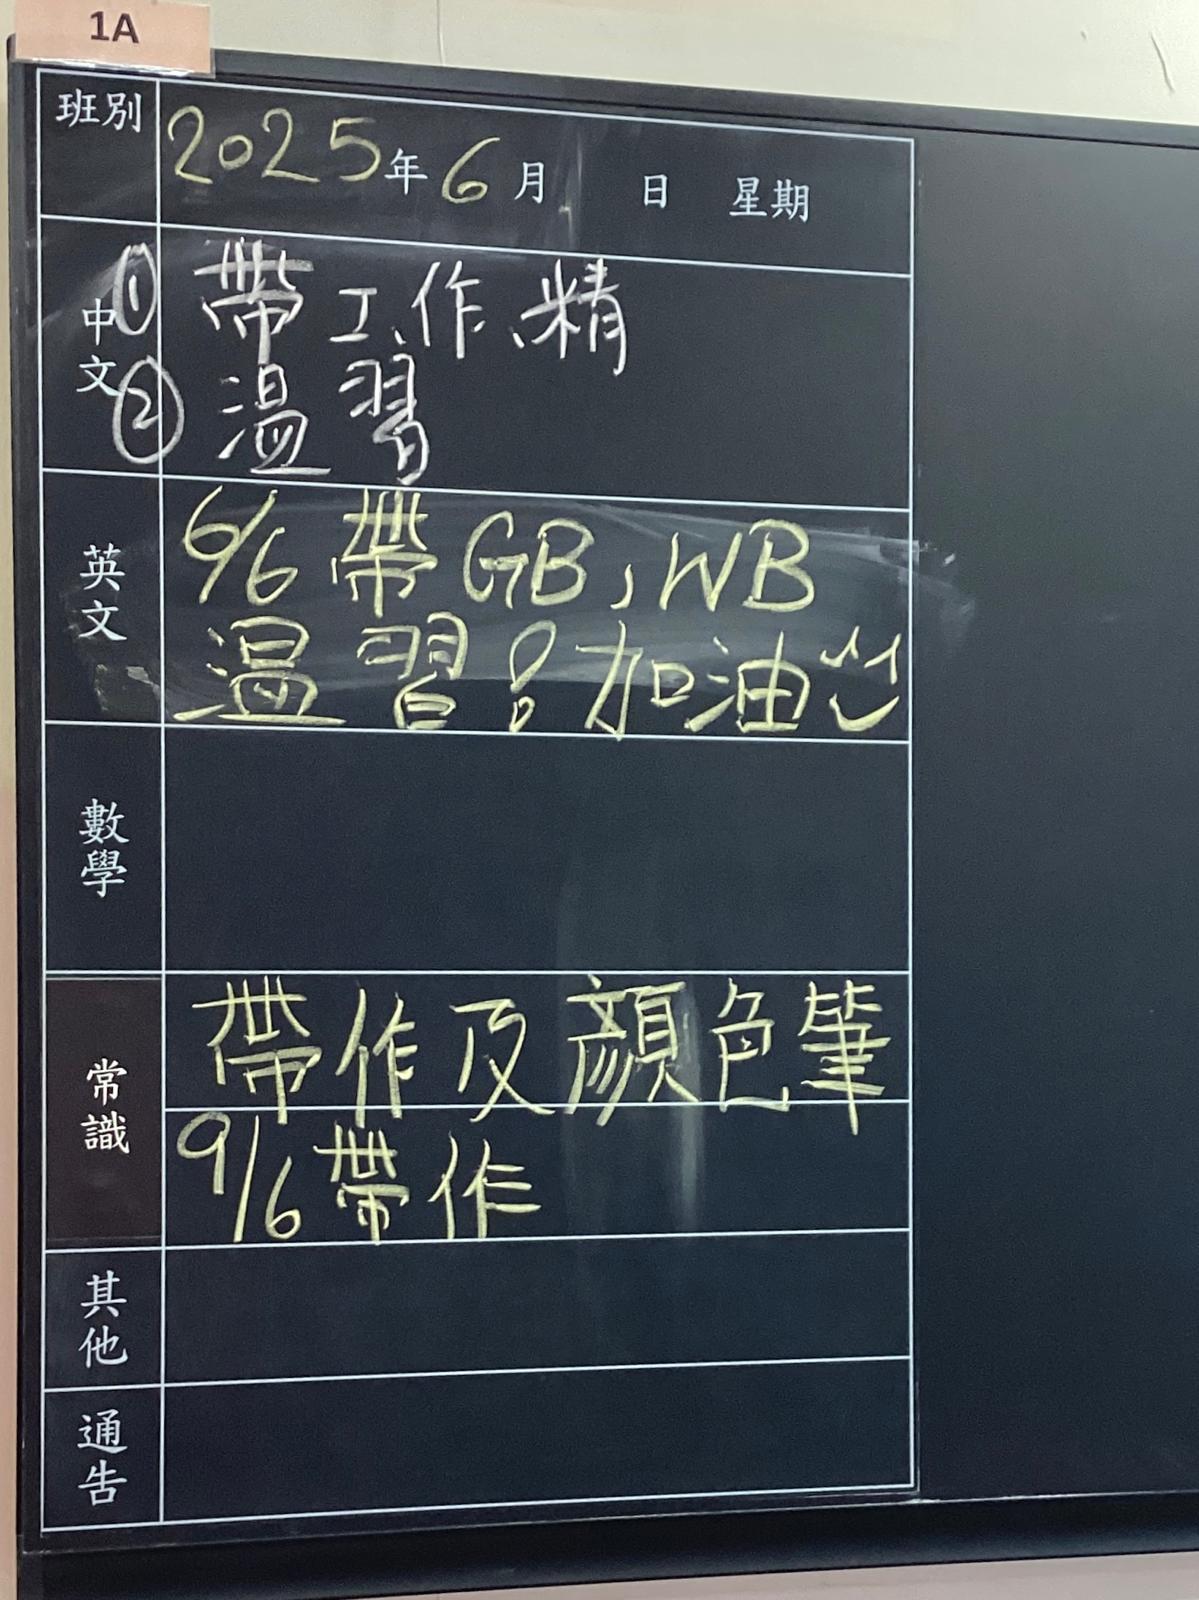 1A
班別 2025年6月 日 星期
中文 ① 帶工作、精
② 温習
英文 6/6 帶GB, WB
温習！加油
數學
常識 帶作及顏色筆
9/6 帶作
其他
通告